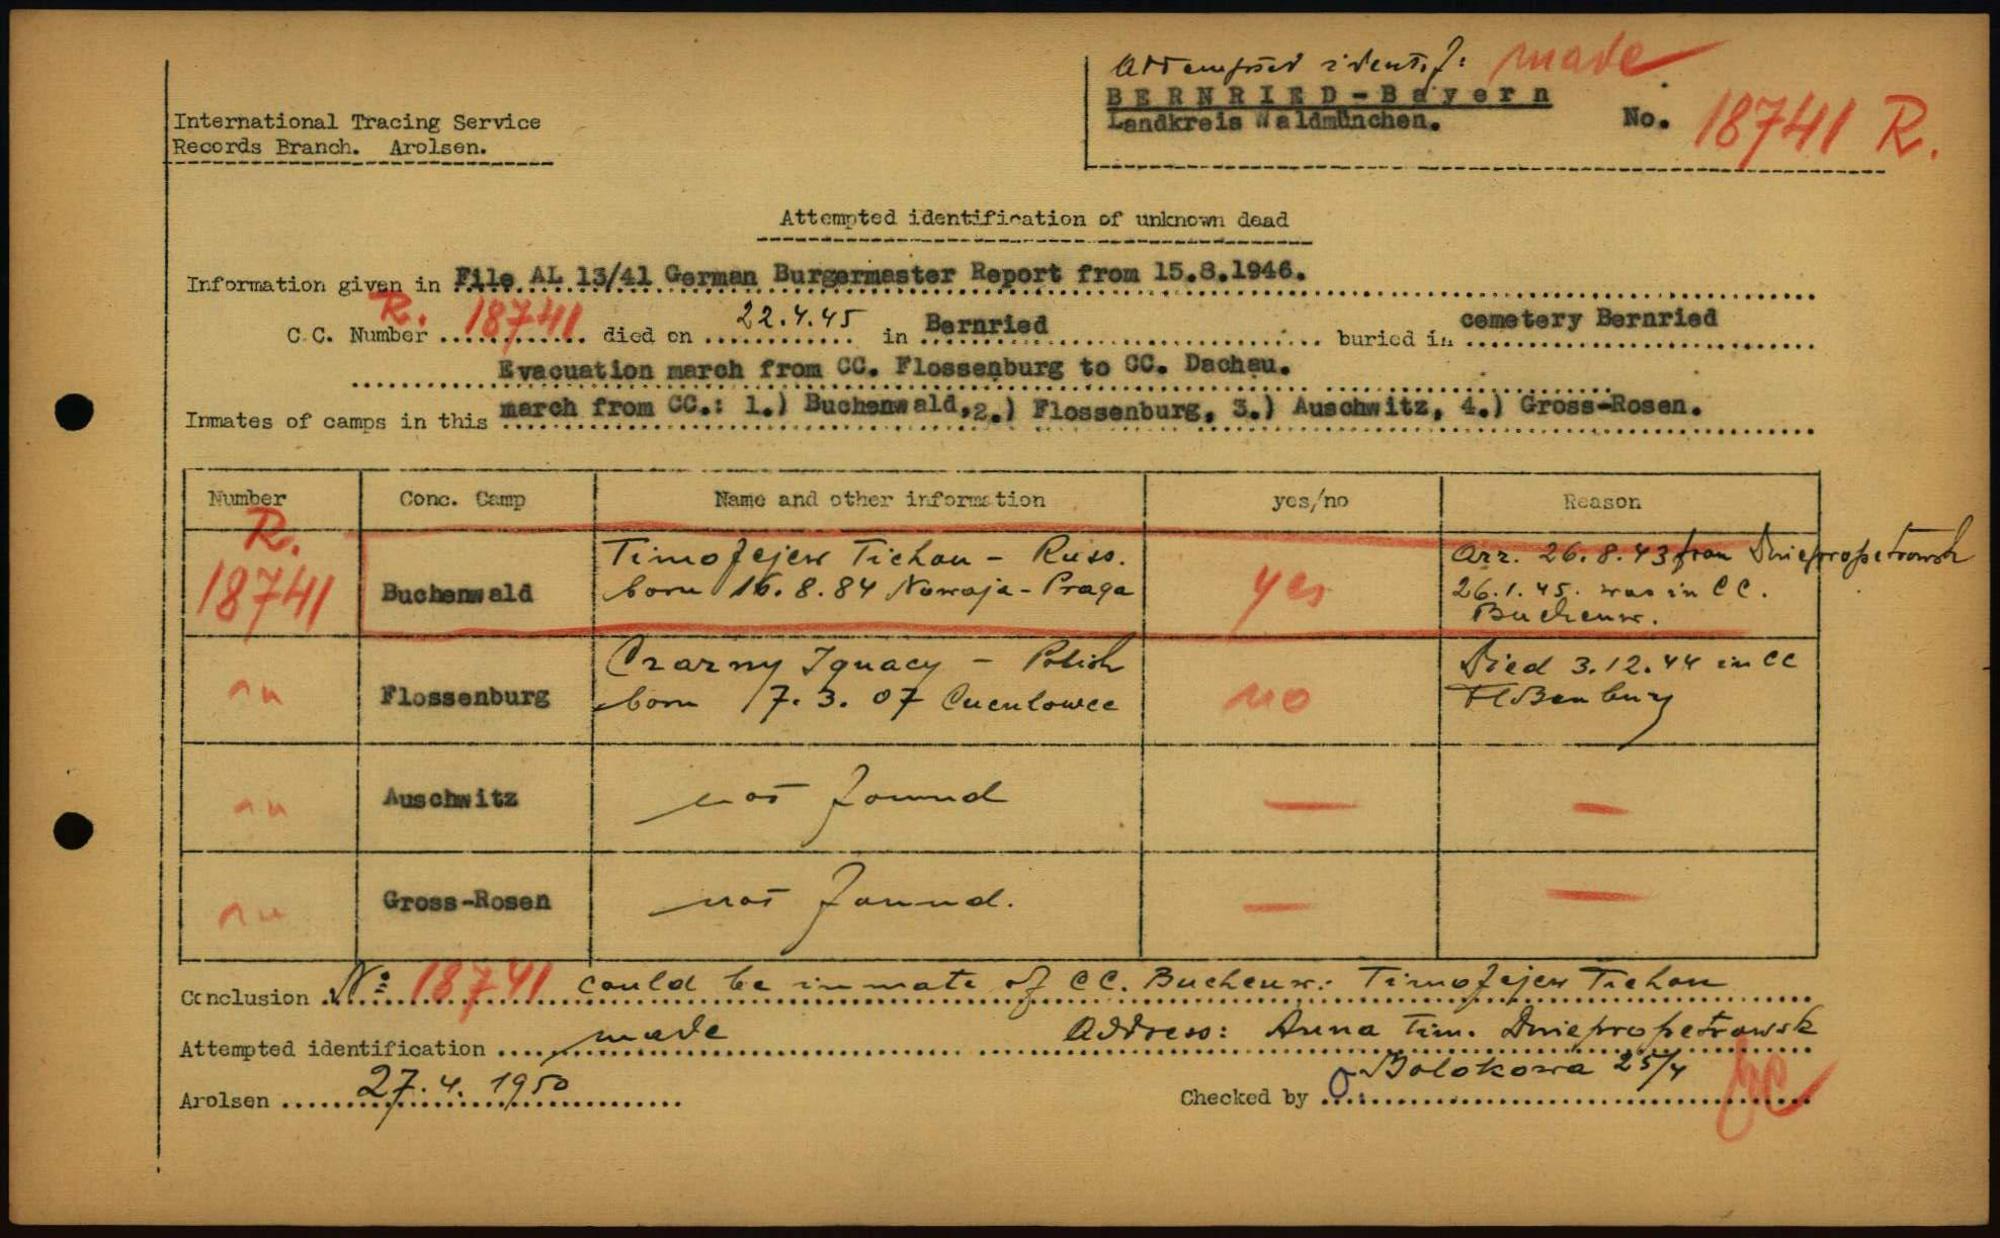 Attempted identif: made
BERNRIED-Bayern
Landkreis Waldmünchen.
No. 18741 R.
International Tracing Service
Records Branch. Arolsen.
Attempted identification of unknown dead
Information given in File AL 13/41 German Burgermaster Report from 15.8.1946.
C.C. Number R. 18741 died on 22.4.45 in Bernried buried in cemetery Bernried
Evacuation march from CC. Flossenburg to CC. Dachau.
Inmates of camps in this march from CC.: 1.) Buchenwald, 2.) Flossenburg, 3.) Auschwitz, 4.) Gross-Rosen.
Number Conc. Camp Name and other information yes/no Reason
R.
18741 Buchenwald Timofejew Tichon - Russ. yes Arr. 26.8.43 from Dniepropetrowsk
born 16.8.84 Nowaja-Praga 26.1.45. was in CC.
Buchenw.
" Flossenburg Czarny Ignacy - Polish no Died 3.12.44 in CC
born 17.3.07 Floßenburg
" Auschwitz not found — —
" Gross-Rosen not found. — —
Conclusion No 18741 could be inmate of CC. Buchenw.: Timofejew Tichon
Attempted identification made Address: Anna Tim. Dniepropetrowsk
Bolokowa 25/4
Arolsen 27.4.1950 Checked by